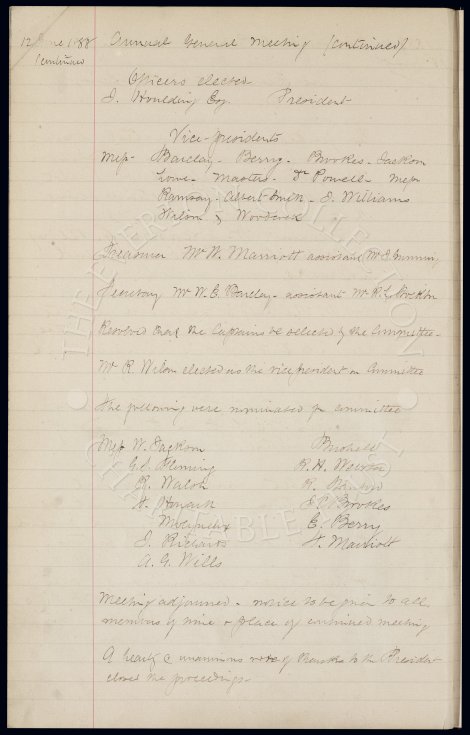 12 June 1888 Annual General Meeting (continued)
(continued
Officers elected
J. Houlding Esq. President
Vice-presidents
Mess- Barclay- Berry- Brookes- Jackson
Lowe- Masters- Dr Powell- Mess
Ramsay- Albert Smith- J. Williams
Wilson & 
Treasurer Mr W. Marriott assistant Mr
Secretary Mr W. E. Barclay- assistant Mr R.
Resolved that the Captains be selected by the Committee-
Mr R. Wilson elected as the vice president on Committee
The following were nominated for committee
Mess W. Jackson
Geo Fleming R. H. Webster
R. Walsh R.
H. Howarth E C Brookes
Molyneux E. Berry
J. Richards H. Marriott
A. G. Wills
Meeting adjourned- notice to be given to all
members of time & place of continued meeting
A hearty & unanimous vote of thanks to the President
closed the proceedings-
THE EVERTON COLLECTION
CHARITABLE TRUST